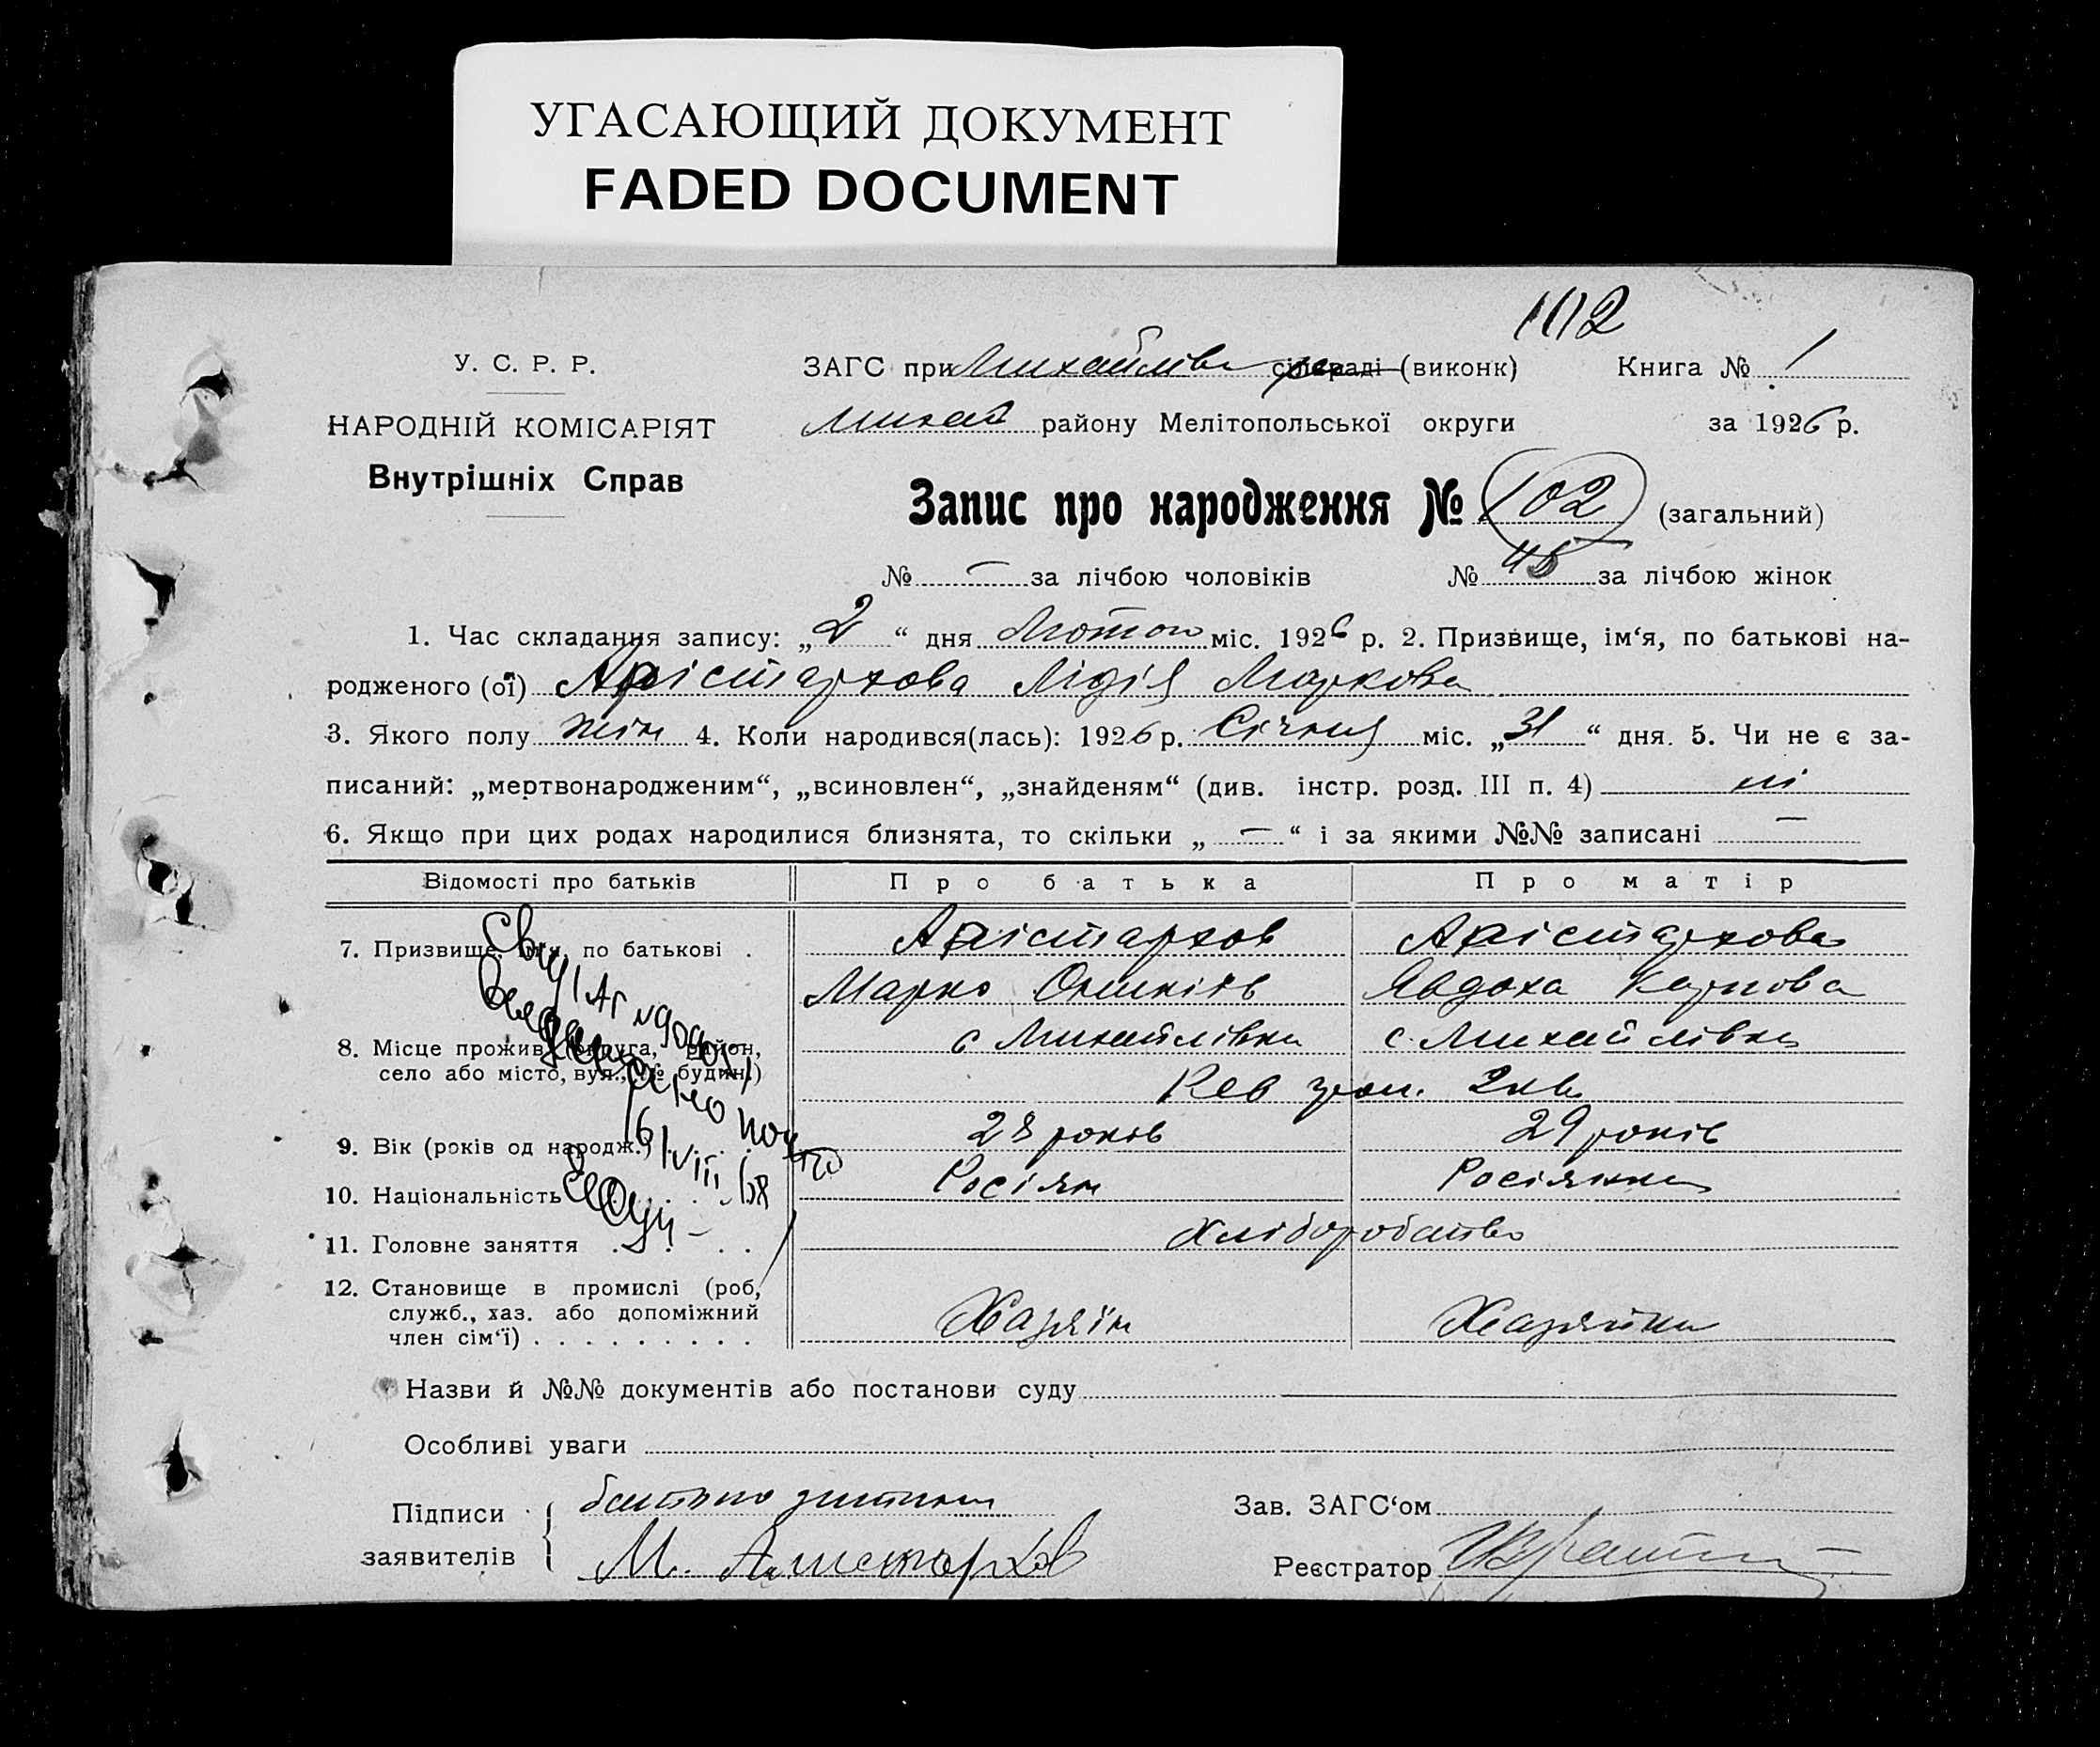 УГАСАЮЩИЙ ДОКУМЕНТ
FADED DOCUMENT
102
У. С. Р. Р.
ЗАГС при Михайлівс сільраді (виконк) Книга № 1
НАРОДНІЙ КОМІСАРІЯТ
Михай району Мелітопольської округи за 1926 р.
Внутрішніх Справ
Запис про народження № 102 (загальний)
№ — за лічбою чоловіків № 45 за лічбою жінок
1. Час складання запису: „2“ дня Лютого міс. 1926 р. 2. Призвище, ім‘я, по батькові на-
родженого (ої) Арістархова Лідія Маркова
3. Якого полу жін 4. Коли народився(лась): 1926 р. Січня міс. „31“ дня. 5. Чи не є за-
писаний: „мертвонародженим“, „всиновлен“, „знайденям“ (див. інстр. розд. III п. 4) ні
6. Якщо при цих родах народилися близнята, то скільки „—“ і за якими №№ записані —
Відомості про батьків Про батька Про матір
7. Призвище, ім‘я, по батькові . Арістархов Арістархова
Марко Явдоха Карпова
8. Місце прожив. (округа, район, с Михайлівка с. Михайлівка
село або місто, вул., № будин.) Рев 2
9. Вік (років од народж.) 28 років 29 років
10. Національність Росіян Росіянка
11. Головне заняття Хліборобство
12. Становище в промислі (роб,
служб., хаз. або допоміжний
член сім‘ї) Хазяїн Хазяйка
16/VIII 58
Назви й №№ документів або постанови суду
Особливі уваги
Підписи батько дитини Зав. ЗАГС‘ом
заявителів М. Аристархов Реєстратор